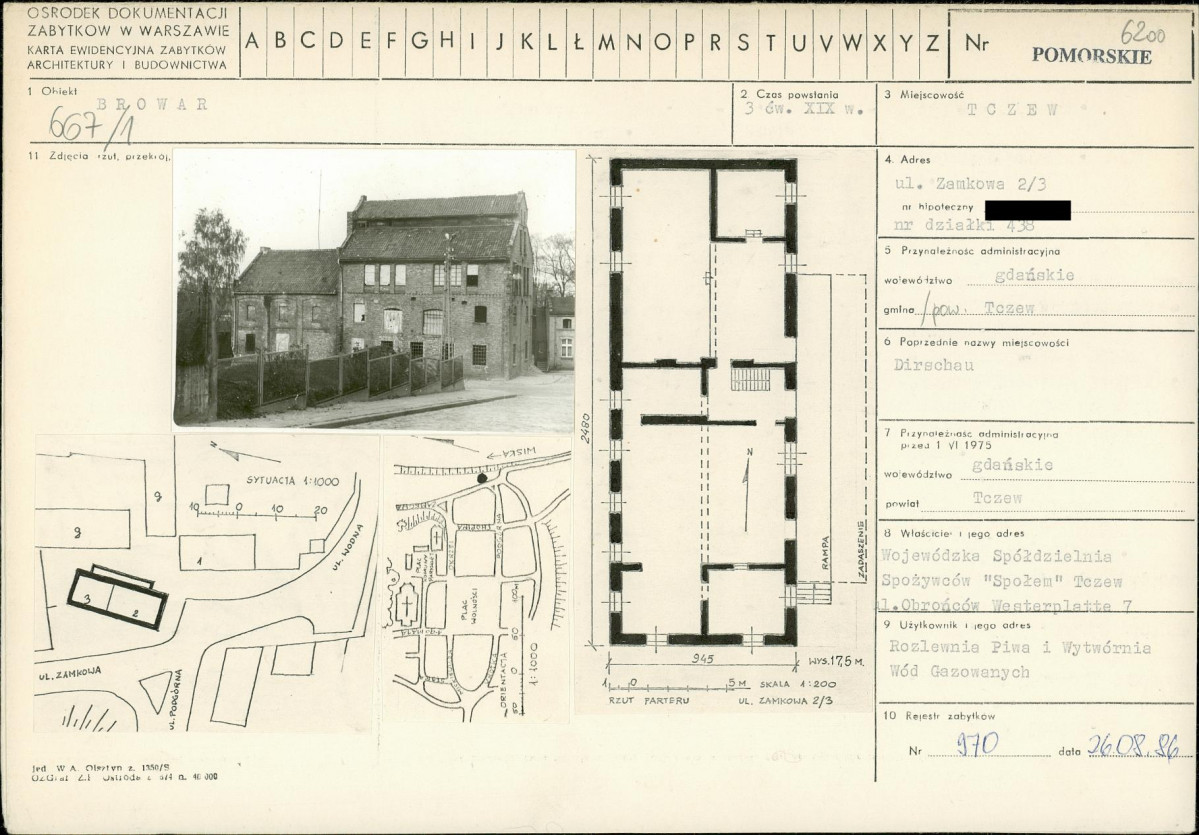 OŚRODEK DOKUMENTACJI
ZABYTKÓW W WARSZAWIE
KARTA EWIDENCYJNA ZABYTKÓW
ARCHITEKTURY I BUDOWNICTWA
A B C D E F G H I J K L Ł M N O P R S T U V W X Y Z
Nr 6200
POMORSKIE
1 Obiekt
BROWAR
667/1
2 Czas powstania
3 ćw. XIX w.
3 Miejscowość
TCZEW
11 Zdjęcia rzut, przekrój,
4. Adres
ul. Zamkowa 2/3
nr hipoteczny
nr działki 438
5 Przynależność administracyjna
województwo gdańskie
gmina /pow. Tczew
6 Poprzednie nazwy miejscowości
Dirschau
7 Przynależność administracyjna
przed 1 VI 1975
województwo gdańskie
powiat Tczew
8 Właściciel i jego adres
Wojewódzka Spółdzielnia
Spożywców "Społem" Tczew
ul.Obrońców Westerplatte 7
9 Użytkownik i jego adres
Rozlewnia Piwa i Wytwórnia
Wód Gazowanych
10 Rejestr zabytków
Nr 970 data 26.08.86
N
SYTUACJA 1:1000
10 0 10 20
g
g
1
3
2
UL. WODNA
UL. ZAMKOWA
UL. PODGÓRNA
WISŁA
ZAMKOWA
CHOPINA
PODGÓRNA
OKRZEI
PLAC
PLAC
WOLNOŚCI
ORIENTACJA
1:1000
50 0 50 100M
2480
N
RAMPA
ZADASZENIE
945
WYS. 17,5 M.
1 0 5 M SKALA 1:200
RZUT PARTERU UL. ZAMKOWA 2/3
Jed. W.A. Olsztyn z. 1350/S
OZGraf Z.P. Ostróda z. 574 n. 40 000